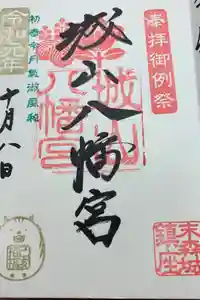 奉拝御例祭
城山八幡宮
城山八幡宮
末森城鎮座
初春令月氣淑風和
令和元年
十月八日